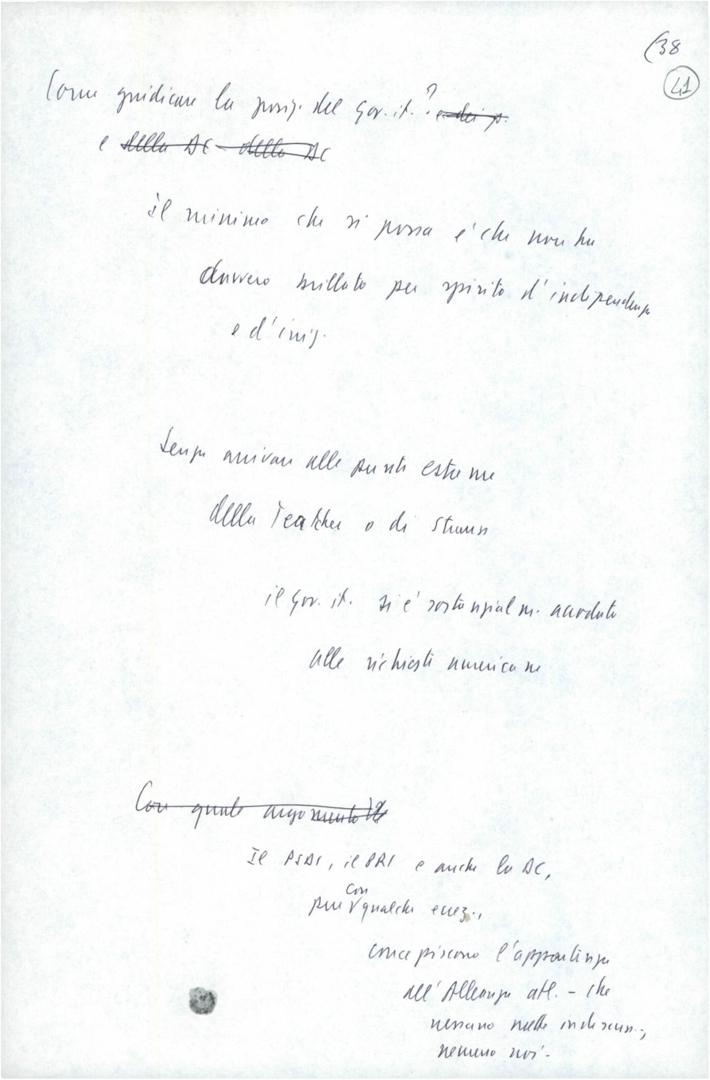 (38
41
Come giudicare la posiz. del Gov. it.? e dei p.
e della DC - della DC
il minimo che si possa è che non ha
davvero brillato per spirito d'indipendenza
e d'iniz.
Senza arrivare alle punte estreme
della Teatcher o di Strauss
il Gov. it. si è sostanzialm. accodato
alle richieste americane
Con quale argomento
Il PSDI, il PRI e anche la DC,
con
pur qualche eccez.,
concepiscono l'appartenenza
all'Alleanza atl. - che
nessuno mette in discuss.,
nemmeno noi -